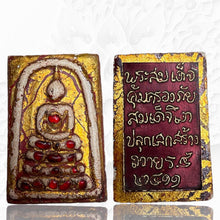 พระสมเด็จ
คุ้มครองภัย
สมเด็จโต
ปลุกเสกสร้าง
ถวาย ร.๕
๒๔๑๑